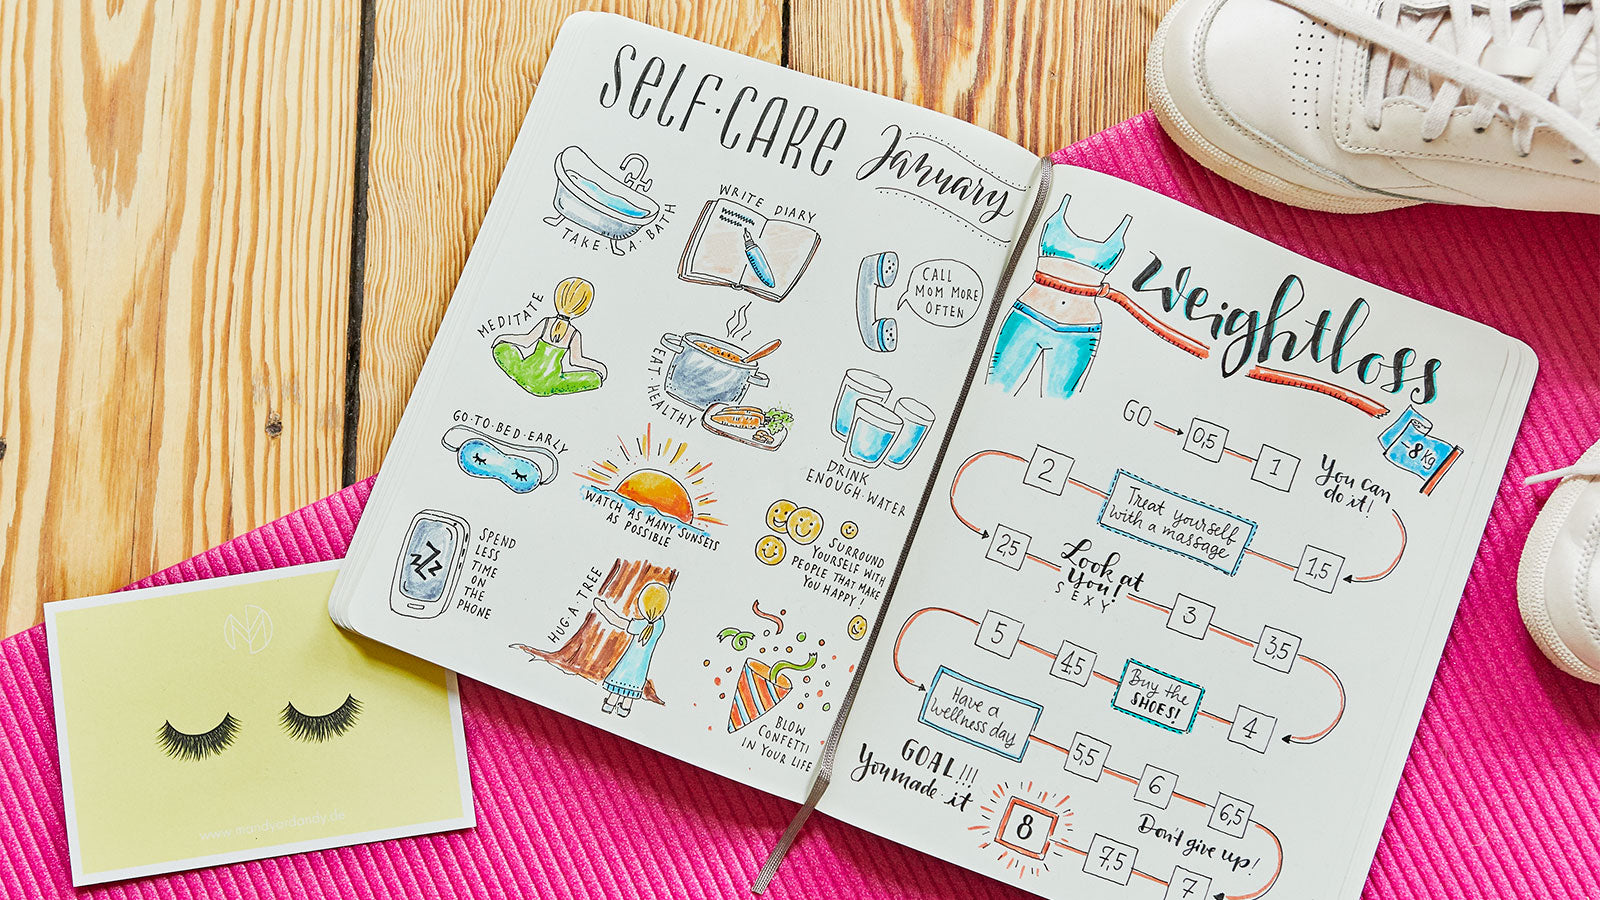 SELF·CARE
January
TAKE·A·BATH
WRITE DIARY
CALL
MOM MORE
OFTEN
MEDITATE
EAT HEALTHY
DRINK
ENOUGH·WATER
GO·TO·BED·EARLY
WATCH AS MANY SUNSETS
AS POSSIBLE
SURROUND
YOURSELF WITH
PEOPLE THAT MAKE
YOU HAPPY!
ZZZ
SPEND
LESS
TIME
ON
THE
PHONE
HUG·A·TREE
BLOW
CONFETTI
IN YOUR LIFE
Weightloss
-8Kg
GO
0,5
1
You can
do it!
1,5
Treat yourself
with a massage
2
2,5
Look at
you!
SEXY
3
3,5
4
Buy the
SHOES!
4,5
5
Have a
wellness day
5,5
6
6,5
Don't give up!
7
7,5
8
GOAL!!!
You made it
www.mandyardandy.de